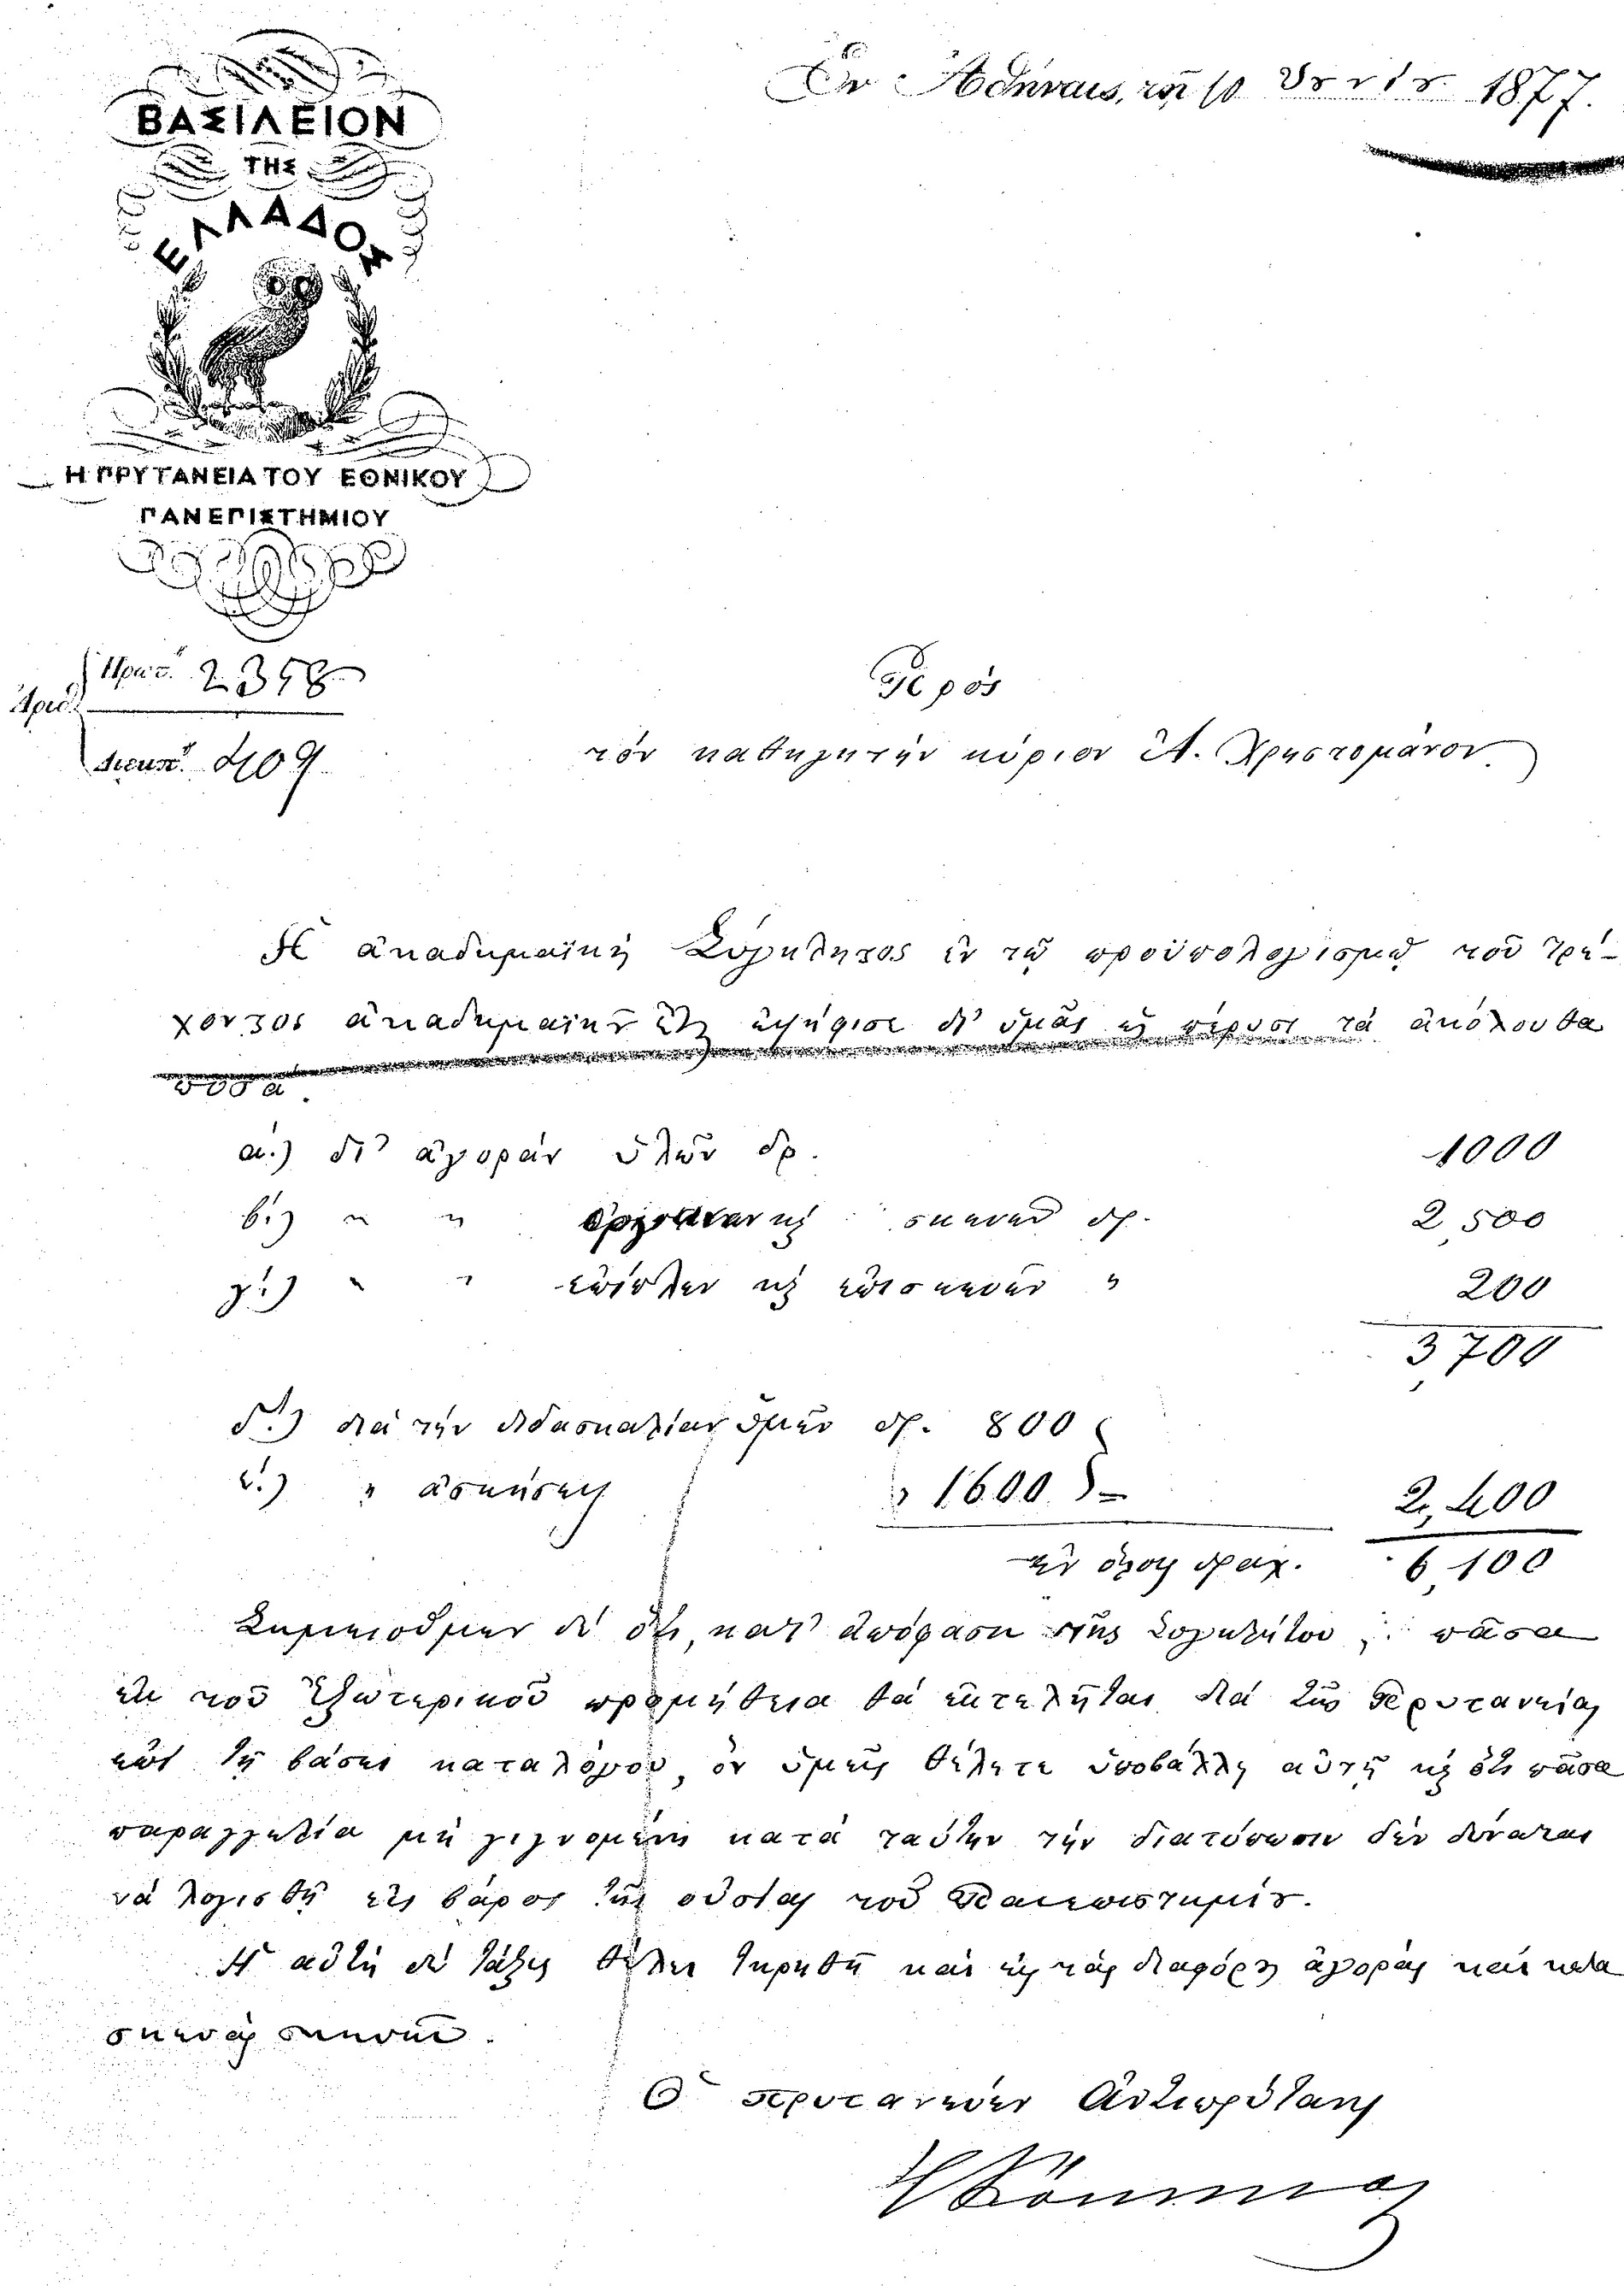 Ἐν Ἀθήναις, τῇ 10 1877.
ΒΑΣΙΛΕΙΟΝ
ΤΗΣ
ΕΛΛΑΔΟΣ
Η ΠΡΥΤΑΝΕΙΑ ΤΟΥ ΕΘΝΙΚΟΥ
ΠΑΝΕΠΙΣΤΗΜΙΟΥ
Πρωτ. 2358
Ἀριθ.
Διεκπ. 409
Πρὸς
τὸν καθηγητὴν κύριον Ἀ. Χρηστομάνον
Ἡ ἀκαδημαϊκὴ Σύγκλητος ἐν τῷ προϋπολογισμῷ τοῦ τρέ-
χοντος ἀκαδημαϊκοῦ ἔτους ἐψήφισε δι' ὑμᾶς τὰ ἀκόλουθα
ποσά.
α.) δι' ἀγορὰν ὑλῶν δρ. 1000
β.) " " ὀργάνων καὶ σκευῶν δρ. 2,500
γ.) " " ἐπίπλων καὶ ἐπισκευὰς " 200
3,700
δ.) διὰ τὴν διδασκαλίαν ὑμῶν δρ. 800
ε.) " ἀσκήσεις " 1600 = 2,400
ἐν ὅλῳ δραχ. 6,100
Σημειοῦμεν δὲ ὅτι, κατ' ἀπόφασιν τῆς Συγκλήτου, πᾶσα
ἐκ τοῦ Ἐξωτερικοῦ προμήθεια θὰ ἐκτελῆται διὰ τῆς Πρυτανείας
ἐπὶ τῇ βάσει καταλόγου, ὃν ὑμεῖς θέλετε ὑποβάλλῃ αὐτῇ καὶ ὅτι πᾶσα
παραγγελία μὴ γιγνομένη κατὰ ταύτην τὴν διατύπωσιν δὲν δύναται
νὰ λογισθῇ εἰς βάρος τῆς οὐσίας τοῦ Πανεπιστημίου.
Ἡ αὐτὴ δὲ τάξις θέλει τηρηθῆ καὶ εἰς τὰς διαφόρους ἀγορὰς καὶ κατα
σκευὰς σκευῶν.
Ὁ πρυτανεύων Ἀντιπρύτανις